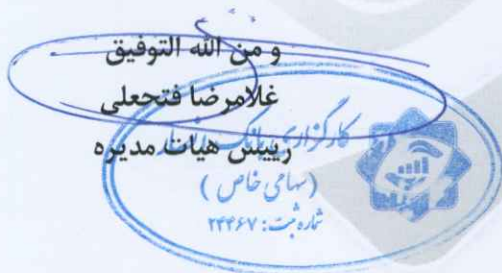 و من الله التوفیق
غلامرضا فتحعلی
رییس هیات مدیره
کارگزاری بانک
(سهامی خاص)
شماره ثبت: ۲۴۴۶۷